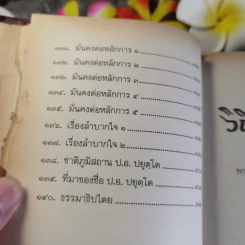 ๑๓๑. มั่นคงต่อหลักการ ๑
๑๓๒. มั่นคงต่อหลักการ ๒
๑๓๓. มั่นคงต่อหลักการ ๓
๑๓๔. มั่นคงต่อหลักการ ๔
๑๓๕. มั่นคงต่อหลักการ ๕
๑๓๖. เรื่องลำบากใจ ๑
๑๓๗. เรื่องลำบากใจ ๒
๑๓๘. ชาติภูมิสถาน ป.อ. ปยุตฺโต
๑๓๙. ที่มาของชื่อ ป.อ. ปยุตฺโต
๑๔๐. ธรรมาธิปไตย